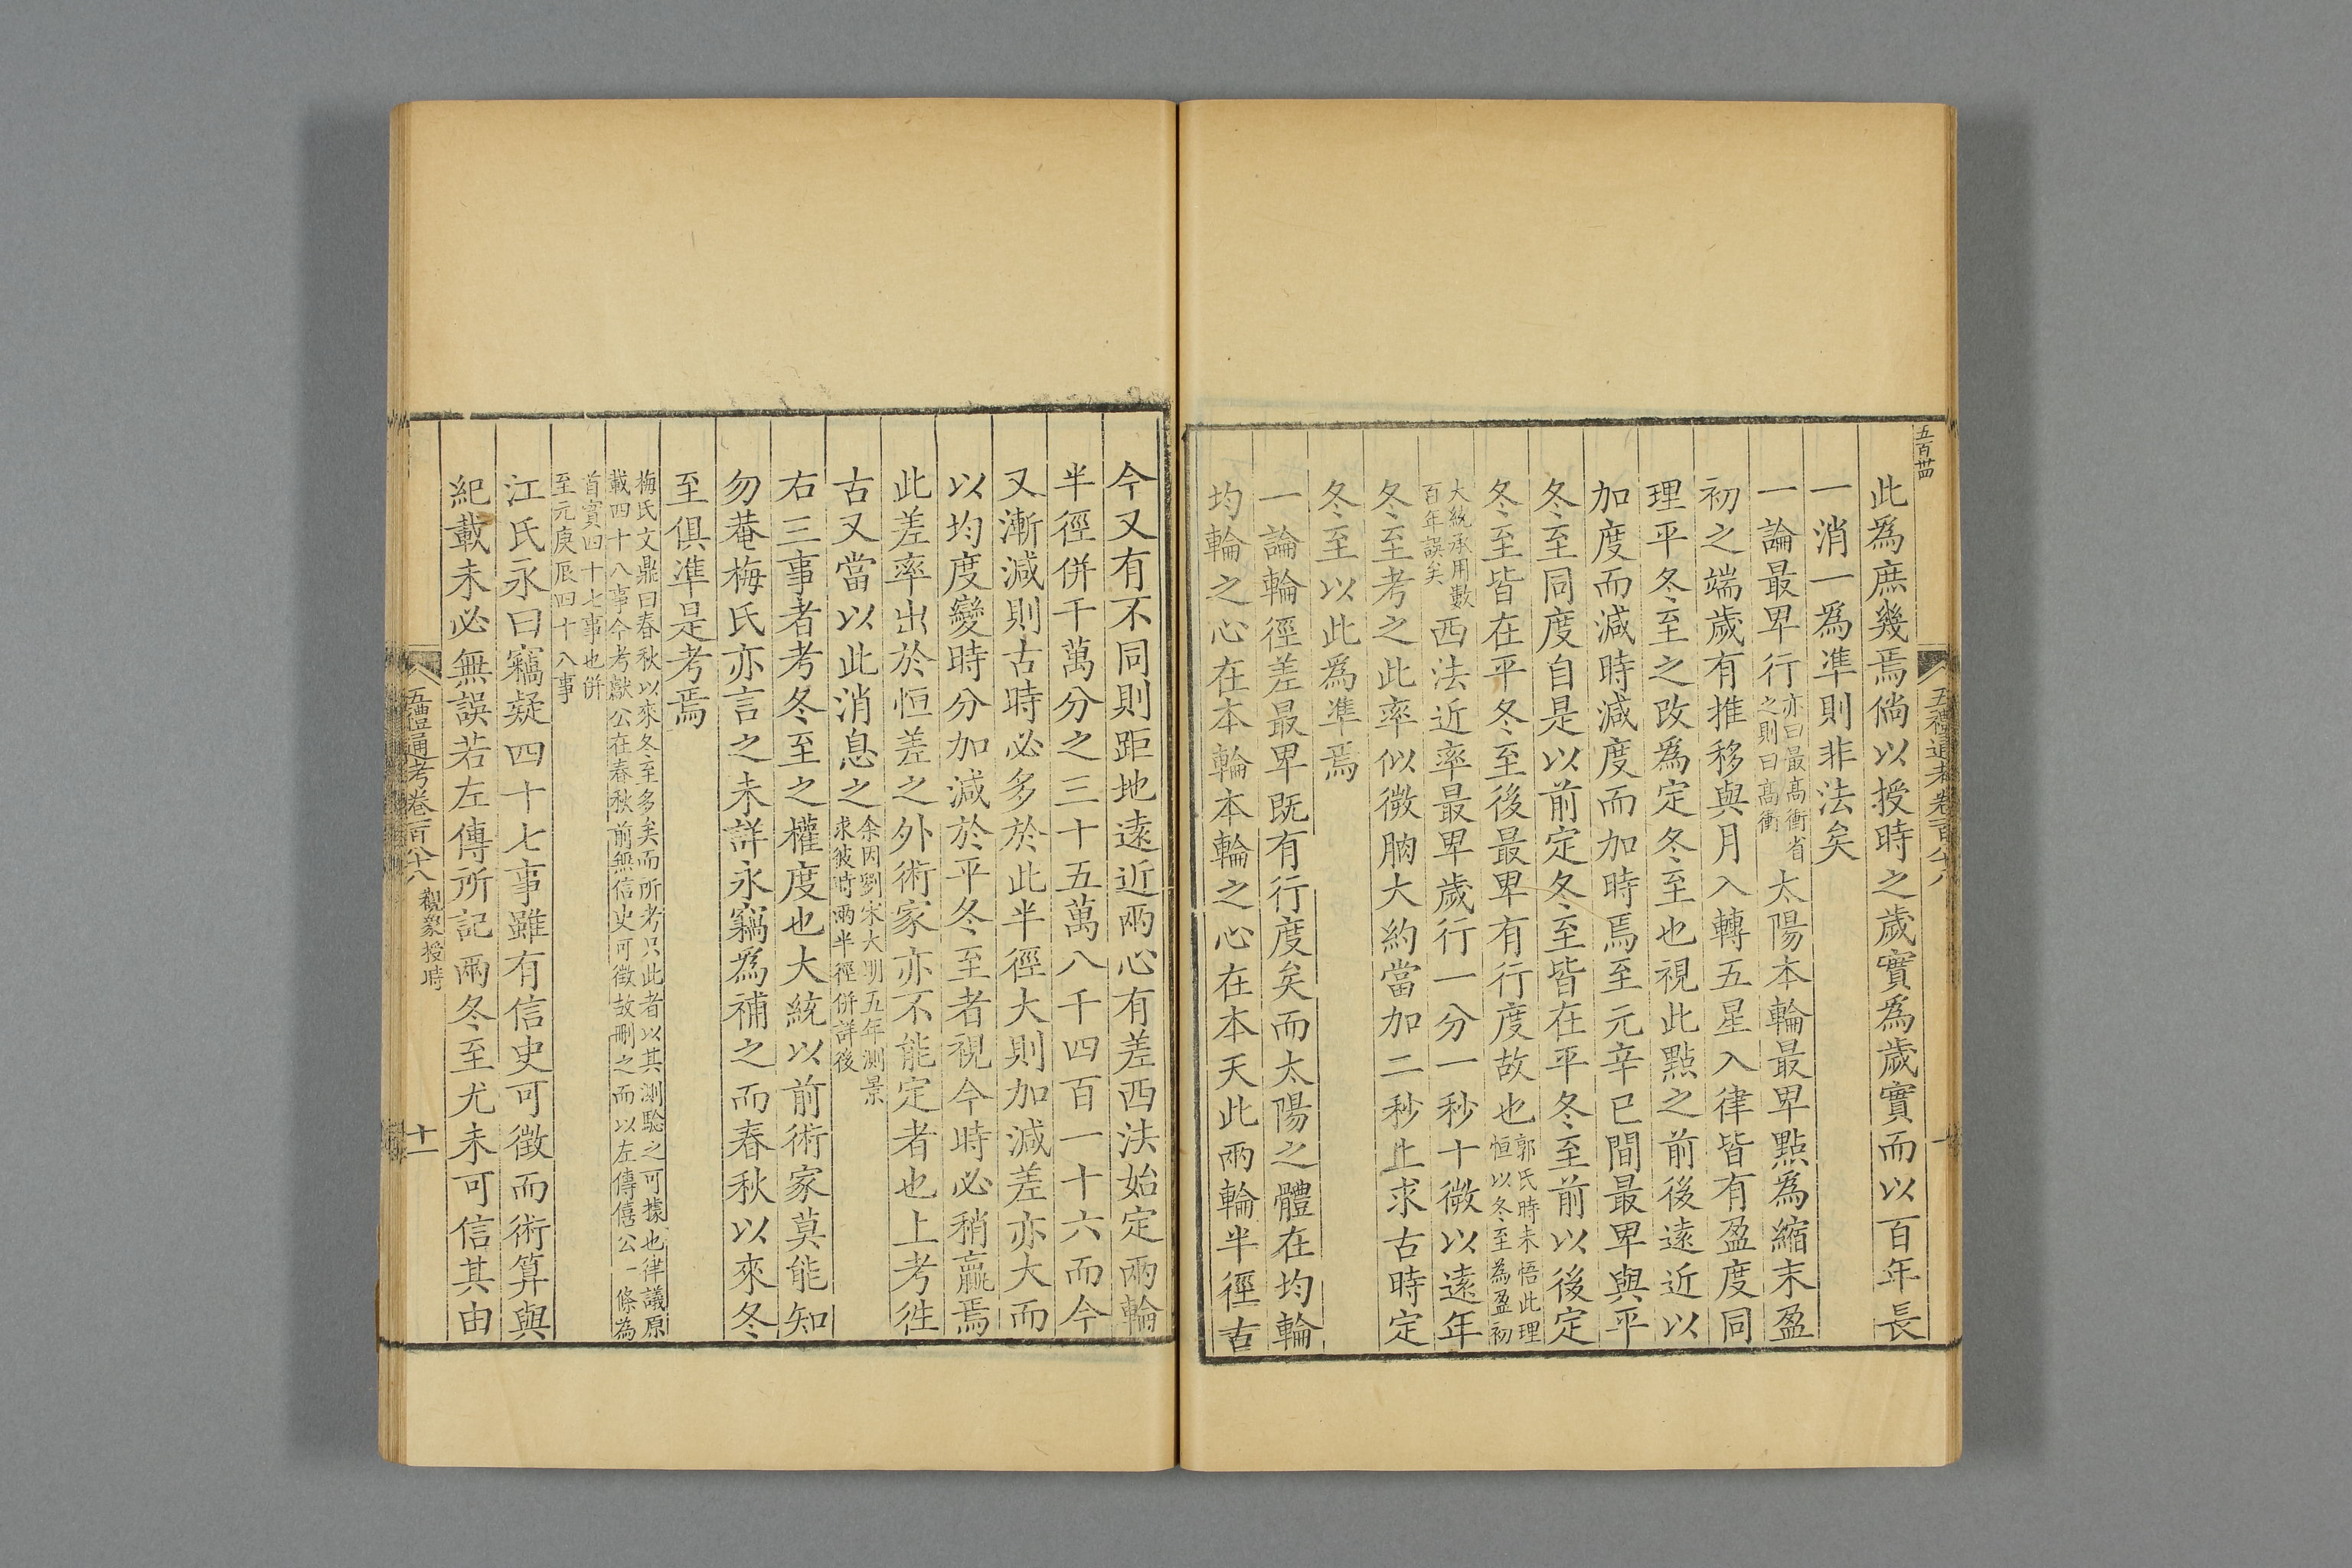 五百卌四
五禮通考卷一百八十八
此爲庶幾焉倘以授時之歲實爲歲實而以百年長
一消一爲準則非法矣
一論最卑行亦曰最髙衝省之則曰髙衝太陽本輪最卑點爲縮末盈
初之端歲有推移與月入轉五星入律皆有盈度同
理平冬至之改爲定冬至也視此點之前後遠近以
加度而減時減度而加時焉至元辛巳間最卑與平
冬至同度自是以前定冬至皆在平冬至前以後定
冬至皆在平冬至後最卑有行度故也郭氏時未悟此理恒以冬至為盈初
大統承用數百年誤矣西法近率最卑歲行一分一秒十微以遠年
冬至考之此率似微朒大約當加二秒止求古時定
冬至以此爲準焉
一論輪徑差最卑既有行度矣而太陽之體在均輪
均輪之心在本輪本輪之心在本天此兩輪半徑古
今又有不同則距地遠近兩心有差西法始定兩輪
半徑併千萬分之三十五萬八千四百一十六而今
又漸減則古時必多於此半徑大則加減差亦大而
以均度變時分加減於平冬至者視今時必稍贏焉
此差率出於恒差之外術家亦不能定者也上考徃
古又當以此消息之余因劉宋大明五年測景求彼時兩半徑併詳後
右三事者考冬至之權度也大統以前術家莫能知
勿菴梅氏亦言之未詳永竊爲補之而春秋以來冬
至俱準是考焉
梅氏文鼎曰春秋以來冬至多矣而所考只此者以其測驗之可據也律議原
載四十八事今考獻公在春秋前無信史可徵故刪之而以左傳僖公一條為
首實四十七事也併
至元庚辰四十八事
江氏永曰竊疑四十七事雖有信史可徵而術算與
紀載未必無誤若左傳所記兩冬至尤未可信其由
五禮通考卷一百八十八 觀象授時
十一